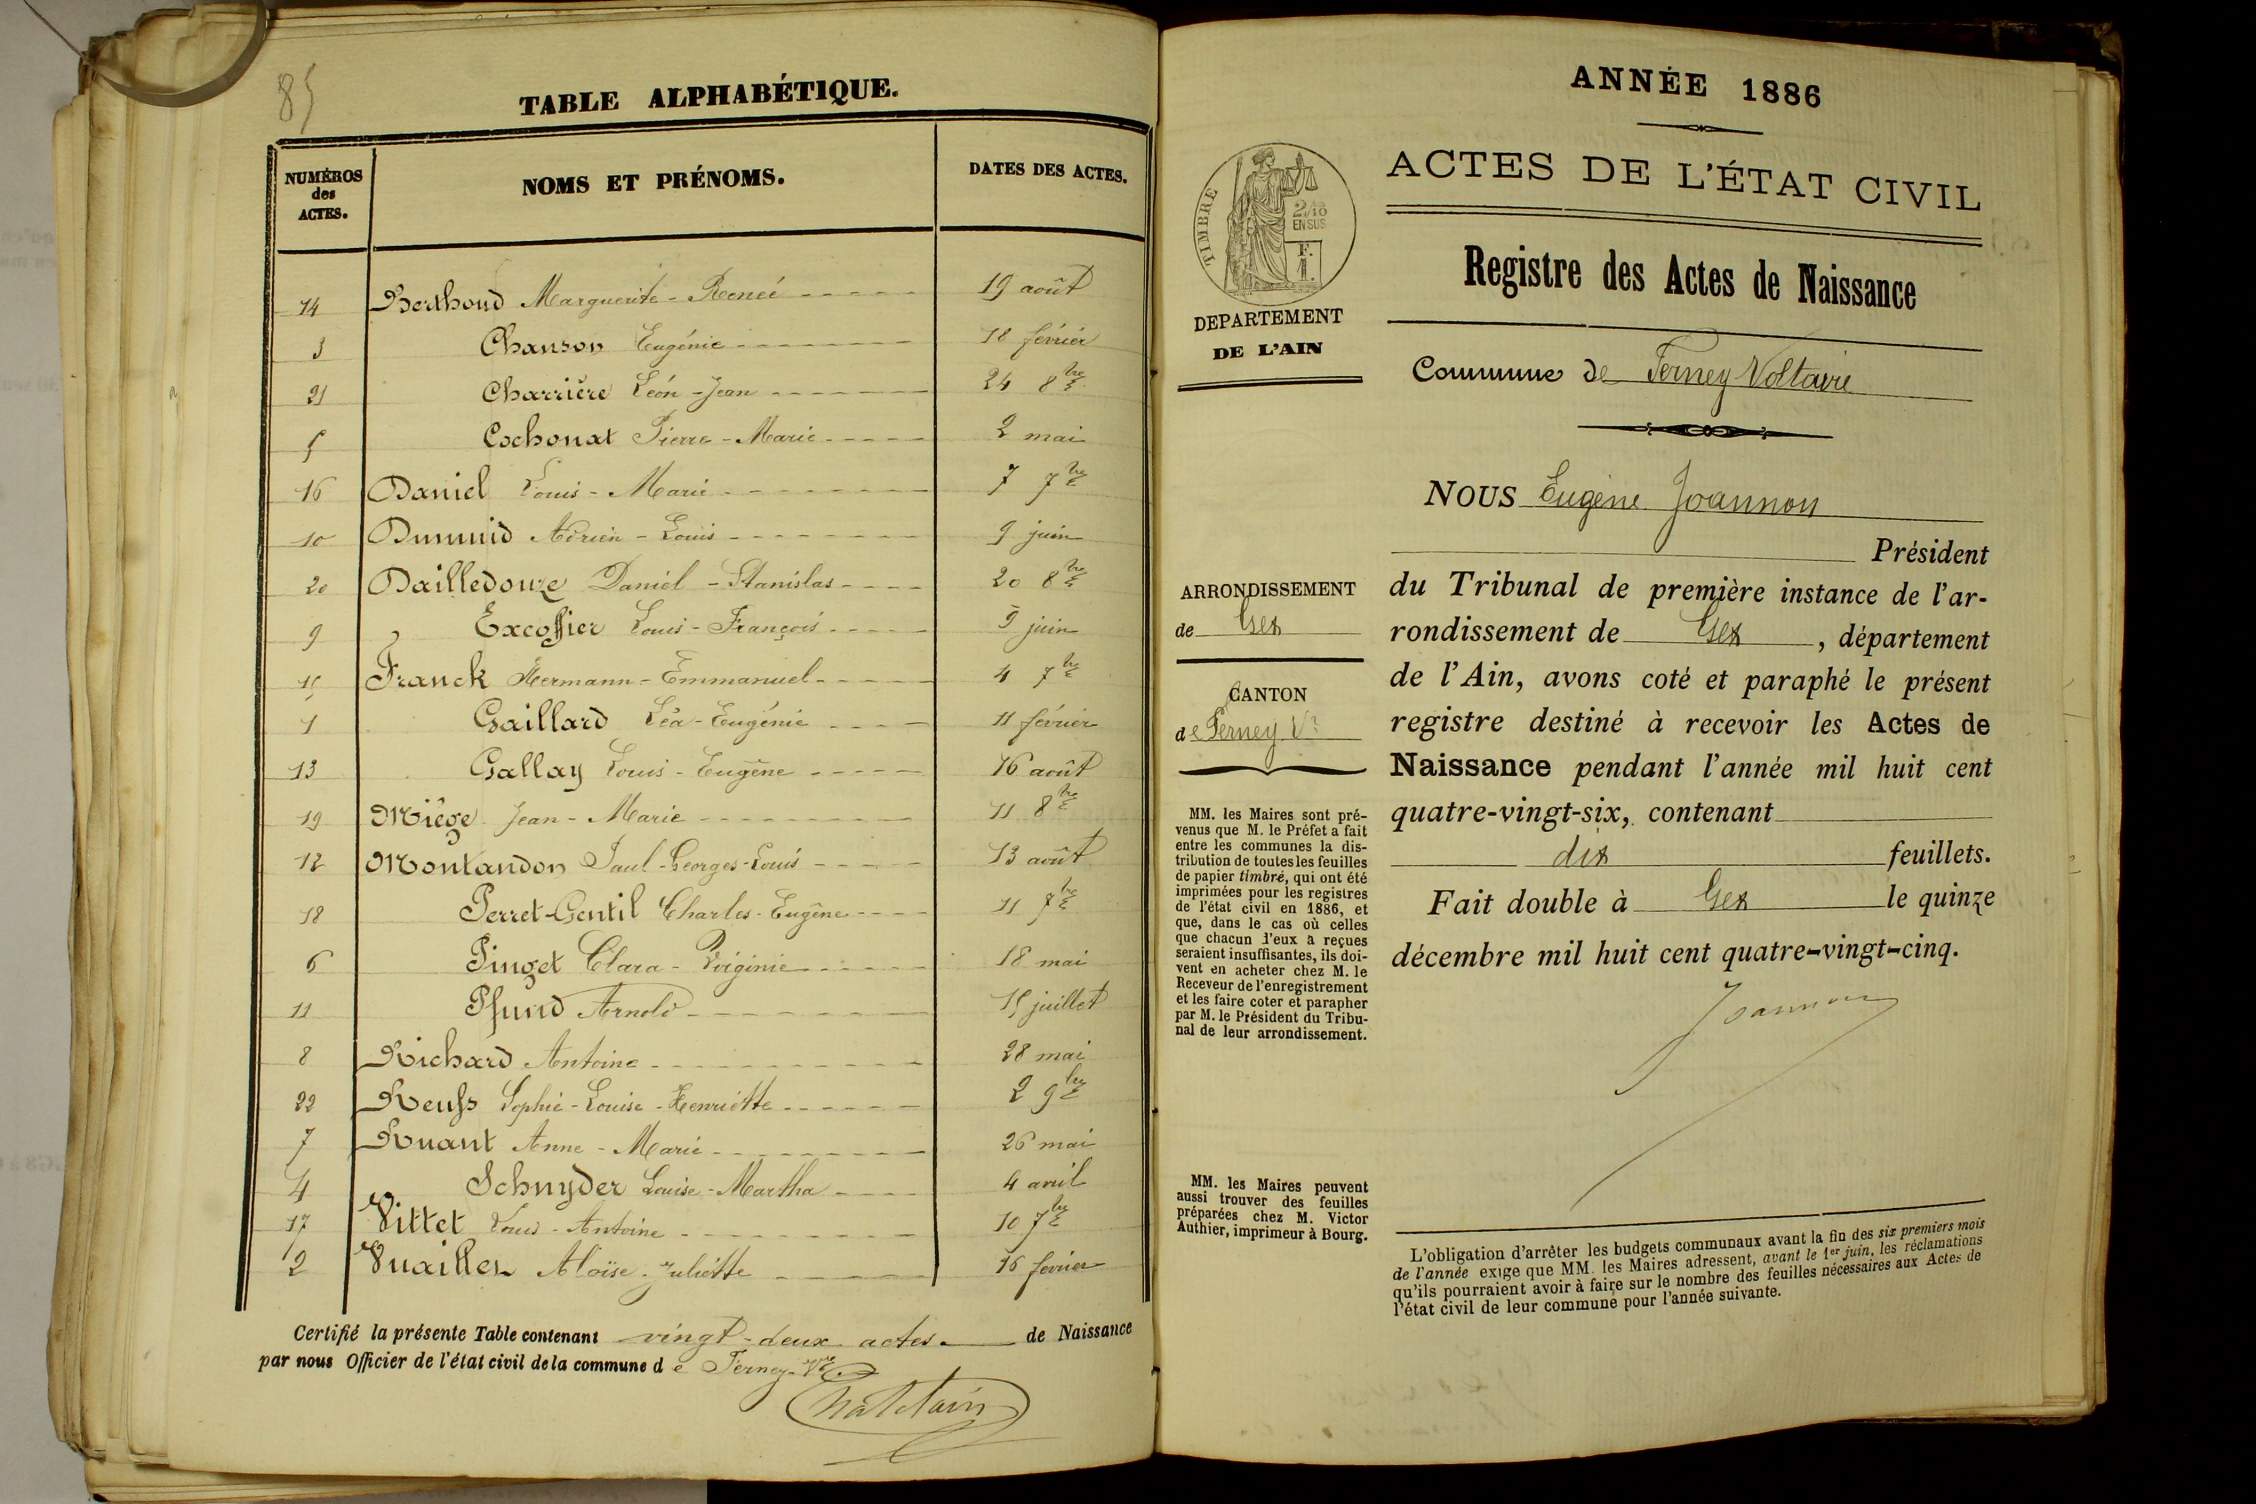 85
TABLE ALPHABÉTIQUE.
NUMÉROS des ACTES. NOMS ET PRÉNOMS. DATES DES ACTES.
14 Berthoud Marguerite-Reneé 19 août
3 Chanson Eugénie 18 février
21 Charrière Léon-Jean 24 8bre
5 Cochonat Pierre-Marie 2 mai
16 Daniel Louis-Marie 7 7bre
10 Dummid Adrien-Louis 9 juin
20 Dailledouze Daniel-Stanislas 20 8bre
9 Excoffier Louis-François 5 juin
15 Franck Hermann-Emmanuel 4 7bre
1 Gaillard Léa-Eugénie 11 février
13 Gallay Louis-Eugène 16 août
19 Miège Jean-Marie 11 8bre
12 Montandon Paul-Georges-Louis 13 août
18 Perret-Gentil Charles-Eugène 11 7bre
6 Pinget Clara-Virginie 18 mai
11 Pfund Arnold 15 juillet
8 Richard Antoine 28 mai
22 Reuss Sophie-Louise-Henriette 2 9bre
7 Ruant Anne-Marie 26 mai
4 Schnyder Louise-Martha 4 avril
17 Vittet Louis-Antoine 10 7bre
2 Vuailler Aloïse-Juliette 16 février
Certifié la présente Table contenant vingt-deux actes. de Naissance
par nous Officier de l'état civil de la commune de Ferney-Vre
Châtelain
ANNÉE 1886
ACTES DE L'ÉTAT CIVIL
TIMBRE
2/10
EN SUS
F.
DEPARTEMENT
DE L'AIN
Registre des Actes de Naissance
Commune de Ferney Voltaire
NOUS Eugène Joannon
Président
du Tribunal de première instance de l'ar-
rondissement de Gex, département
de l'Ain, avons coté et paraphé le présent
registre destiné à recevoir les Actes de
Naissance pendant l'année mil huit cent
quatre-vingt-six, contenant
dix feuillets.
Fait double à Gex le quinze
décembre mil huit cent quatre-vingt-cinq.
Joannon
ARRONDISSEMENT
de Gex
CANTON
de Ferney Vre
MM. les Maires sont pré-
venus que M. le Préfet a fait
entre les communes la dis-
tribution de toutes les feuilles
de papier timbré, qui ont été
imprimées pour les registres
de l'état civil en 1886, et
que, dans le cas où celles
que chacun d'eux a reçues
seraient insuffisantes, ils doi-
vent en acheter chez M. le
Receveur de l'enregistrement
et les faire coter et parapher
par M. le Président du Tribu-
nal de leur arrondissement.
MM. les Maires peuvent
aussi trouver des feuilles
préparées chez M. Victor
Authier, imprimeur à Bourg.
L'obligation d'arrêter les budgets communaux avant la fin des six premiers mois
de l'année exige que MM. les Maires adressent, avant le 1er juin, les réclamations
qu'ils pourraient avoir à faire sur le nombre des feuilles nécessaires aux Actes de
l'état civil de leur commune pour l'année suivante.